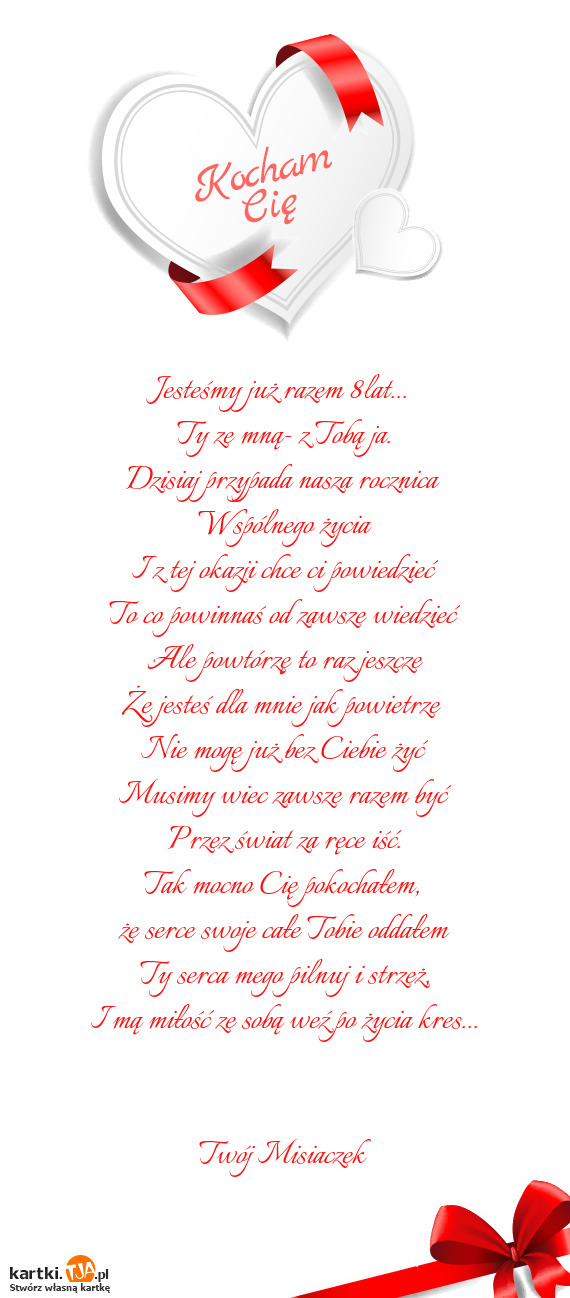 Kocham
Cię
Jesteśmy już razem 8lat...
Ty ze mną- z Tobą ja.
Dzisiaj przypada nasza rocznica
Wspólnego życia
I z tej okazji chce ci powiedzieć
To co powinnaś od zawsze wiedzieć
Ale powtórzę to raz jeszcze
Że jesteś dla mnie jak powietrze
Nie mogę już bez Ciebie żyć
Musimy wiec zawsze razem być
Przez świat za ręce iść.
Tak mocno Cię pokochałem,
że serce swoje całe Tobie oddałem
Ty serca mego pilnuj i strzeż,
I mą miłość ze sobą weź po życia kres...
Twój Misiaczek
kartki.TJA.pl
Stwórz własną kartkę